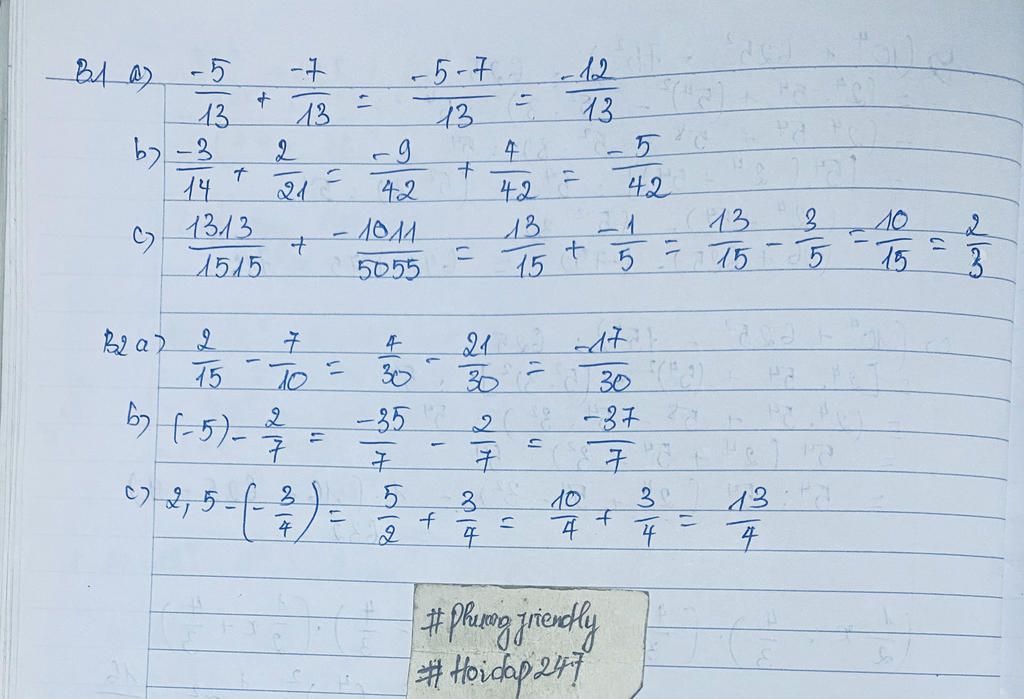 B1 a) -5/13 + -7/13 = -5-7/13 = -12/13
b) -3/14 + 2/21 = -9/42 + 4/42 = -5/42
c) 1313/1515 + -1011/5055 = 13/15 + -1/5 = 13/15 - 3/5 = 10/15 = 2/3
B2 a) 2/15 - 7/10 = 4/30 - 21/30 = -17/30
b) (-5) - 2/7 = -35/7 - 2/7 = -37/7
c) 2,5 - (-3/4) = 5/2 + 3/4 = 10/4 + 3/4 = 13/4
# Phuong friendly
# Hoidap247